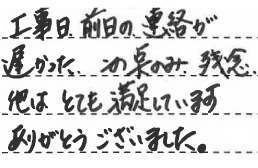 工事日 前日の連絡が
遅かった この点のみ 残念
他は とても 満足しています
ありがとうございました。